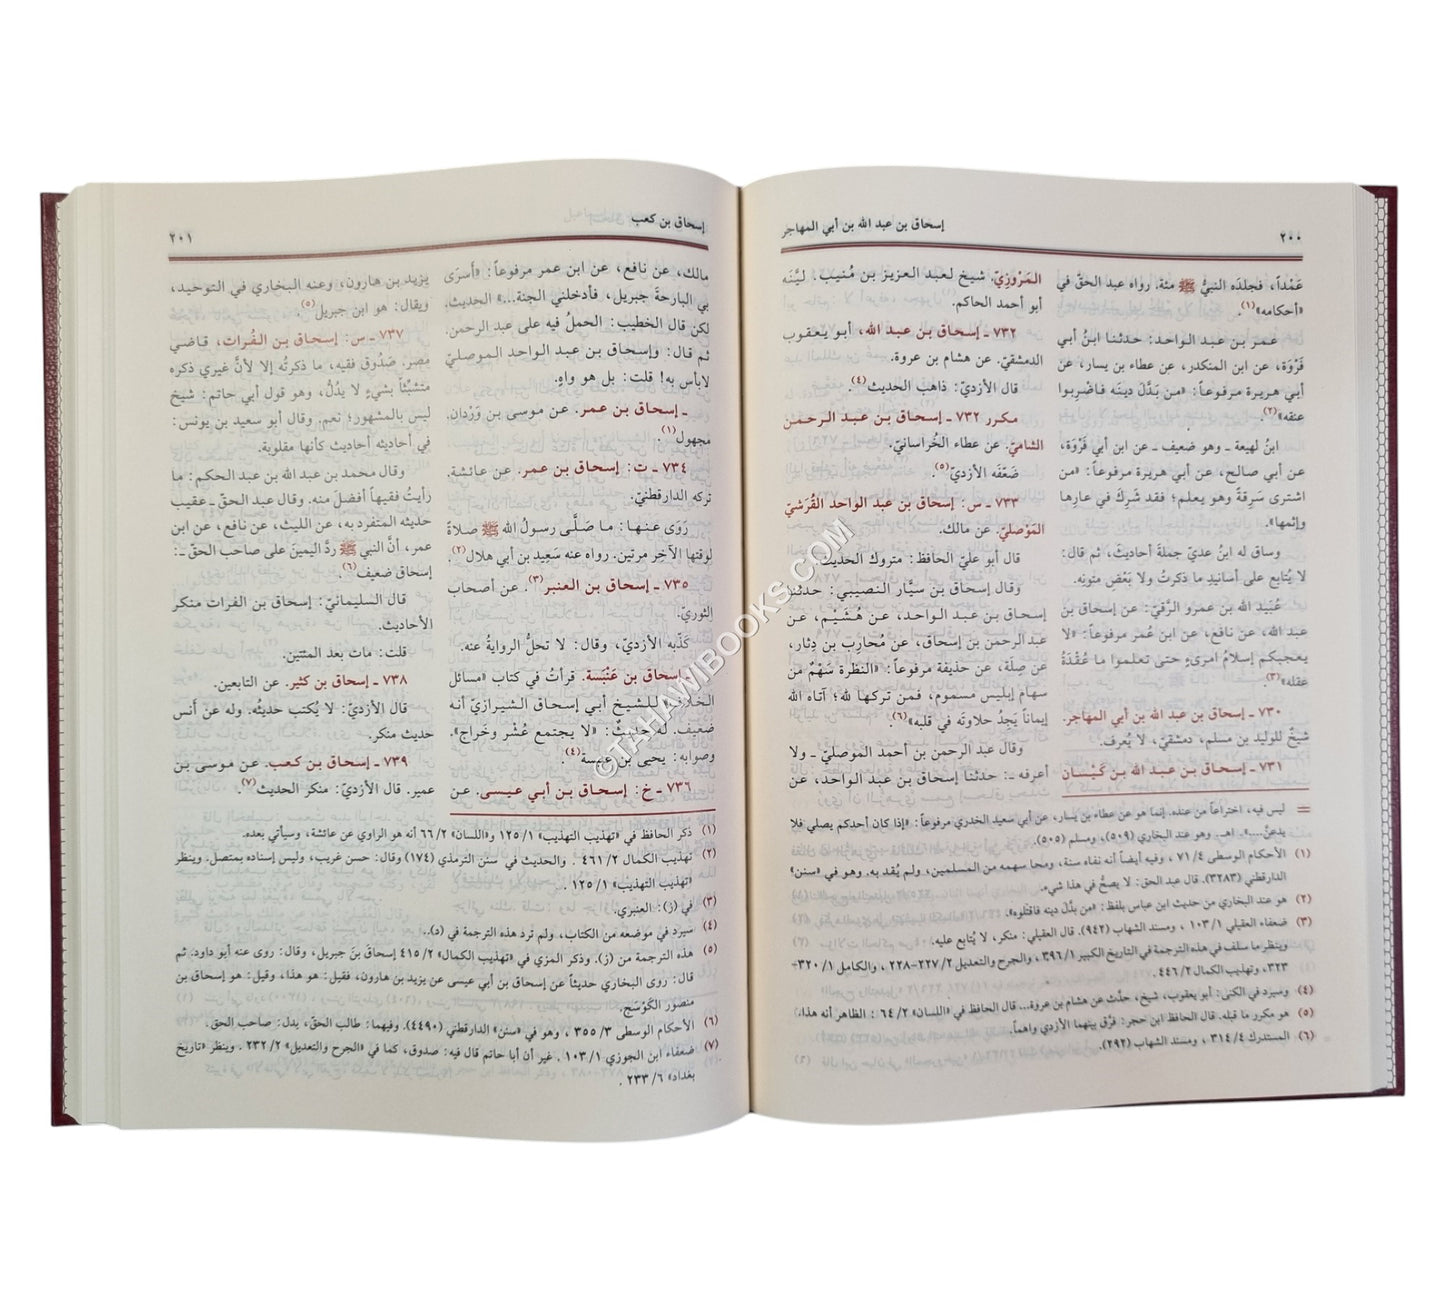 ٢٠٠
إسحاق بن عبد الله بن أبي المهاجر
عَمْداً، فجلدَه النبيُّ ﷺ مئة. رواه عبد الحقّ في
«أحكامه»(١).
عمر بن عبد الواحد: حدثنا ابنُ أبي
فَرْوَة، عن ابن المنكدر، عن عطاء بن يسار، عن
أبي هريرة مرفوعاً: «من بَدَّلَ دينَه فاضربوا
عنقه»(٢).
ابنُ لهيعة ـ وهو ضعيف ـ عن ابن أبي فَرْوَة،
عن أبي صالح، عن أبي هريرة مرفوعاً: «من
اشترى سَرِقةً وهو يعلم؛ فقد شَرِكَ في عارها
وإثمها».
وساق له ابنُ عديّ جملةَ أحاديث، ثم قال:
لا يُتابع على أسانيد ما ذكرتُ ولا بَعْضِ متونه.
عُبَيد الله بن عمرو الرَّقيّ: عن إسحاق بن
عبد الله، عن نافع، عن ابن عُمر مرفوعاً: «لا
يعجبكم إسلامُ امرىءٍ حتى تعلموا ما عُقْدَةُ
عقله»(٣).
٧٣٠ ـ إسحاق بن عبد الله بن أبي المهاجر.
شيخٌ للوليد بن مسلم، دمشقيّ، لا يُعرف.
٧٣١ ـ إسحاق بن عبد الله بن كَيْسان
المَرْوزيّ. شيخ لعبد العزيز بن مُنيب. ليَّنَه
أبو أحمد الحاكم.
٧٣٢ ـ إسحاق بن عبد الله، أبو يعقوب
الدمشقيّ. عن هشام بن عروة.
قال الأزديّ: ذاهب الحديث(٤).
مكرر ٧٣٢ ـ إسحاق بن عبد الرحمن
الشاميّ. عن عطاء الخُراسانيّ.
ضَعَّفَه الأزديّ(٥).
٧٣٣ ـ س: إسحاق بن عبد الواحد القُرَشيّ
المَوْصليّ. عن مالك.
قال أبو عليّ الحافظ: متروك الحديث.
وقال إسحاق بن سيَّار النصيبي: حدثنا
إسحاق بن عبد الواحد، عن هُشيْم، عن
عبد الرحمن بن إسحاق، عن مُحارِب بن دِثار،
عن صِلَة، عن حذيفة مرفوعاً: «النظرة سَهْمٌ من
سهام إبليس مسموم، فمن تركها لله؛ آتاه الله
إيماناً يَجِدُ حلاوتَه في قلبه»(٦).
وقال عبد الرحمن بن أحمد الموصليّ ـ ولا
أعرفه ـ: حدثنا إسحاق بن عبد الواحد، عن
= ليس فيه، اختراعاً من عنده. إنما هو عن عطاء بن يسار، عن أبي سعيد الخدري مرفوعاً: «إذا كان أحدكم يصلي فلا
يدعنَّ...». اهـ. وهو عند البخاري (٥٠٩)، ومسلم (٥٠٥).
(١) الأحكام الوسطى ٧١/٤ ، وفيه أيضاً أنه نفاه سنة، ومحا سهمه من المسلمين، ولم يُقد به. وهو في «سنن»
الدارقطني (٣٢٨٣). قال عبد الحق: لا يصحُّ في هذا شيء.
(٢) هو عند البخاري من حديث ابن عباس بلفظ: «من بدَّل دينه فاقتلوه».
(٣) ضعفاء العقيلي ١٠٣/١ ، ومسند الشهاب (٩٤٢). قال العقيلي: منكر، لا يُتابع عليه.
وينظر ما سلف في هذه الترجمة في التاريخ الكبير ٣٩٦/١ ، والجرح والتعديل ٢٢٧/٢-٢٢٨ ، والكامل ٣٢٠/١-
٣٢٣، وتهذيب الكمال ٤٤٦/٢.
(٤) وسيرد في الكنى: أبو يعقوب، شيخ، حدَّث عن هشام بن عروة... قال الحافظ في «اللسان» ٦٤/٢ : الظاهر أنه هذا.
(٥) هو مكرر ما قبله. قال الحافظ ابن حجر: فرَّق بينهما الأزدي واهماً.
(٦) المستدرك ٣١٤/٤ ، ومسند الشهاب (٢٩٢).
إسحاق بن كعب
٢٠١
مالك، عن نافع، عن ابن عمر مرفوعاً: «أَسرَى
بي البارحةَ جبريل، فأدخلني الجنة...» الحديث.
لكن قال الخطيب: الحملُ فيه على عبد الرحمن.
ثم قال: وإسحاق بن عبد الواحد الموصليّ
لابأس به! قلت: بل هو واهٍ.
ـ إسحاق بن عمر. عن موسى بن وَرْدان.
مجهول(١).
٧٣٤ ـ ت: إسحاق بن عمر. عن عائشة.
تركه الدارقطنيّ.
رَوَى عنها: ما صَلَّى رسولُ الله ﷺ صلاةً
لوقتها الآخِر مرتين. رواه عنه سَعِيد بن أبي هلال(٢).
٧٣٥ ـ إسحاق بن العنبر(٣). عن أصحاب
الثوريّ.
كذَّبه الأزديّ، وقال: لا تحلُّ الروايةُ عنه.
ـ إسحاق بن عَنْبَسة. قرأتُ في كتاب «مسائل
الخلاف» للشيخ أبي إسحاق الشيرازيّ أنه
ضعيف. له حديثٌ: «لا يجتمع عُشْر وخَراج».
وصوابه: يحيى بن عنبسة(٤).
٧٣٦ ـ خ: إسحاق بن أبي عيسى. عن
يزيد بن هارون، وعنه البخاري في التوحيد،
ويقال: هو ابن جبريل(٥).
٧٣٧ ـ س: إسحاق بن الفُرات، قاضي
مصر. صَدُوق فقيه، ما ذكرتُه إلا لأنَّ غيري ذكره
متشبِّثاً بشيءٍ لا يدُلُّ، وهو قول أبي حاتم: شيخ
ليس بالمشهور؛ نعم. وقال أبو سعيد بن يونس:
في أحاديثه أحاديث كأنها مقلوبة.
وقال محمد بن عبد الله بن عبد الحكم: ما
رأيتُ فقيهاً أفضلَ منه. وقال عبد الحقّ ـ عقيب
حديثه المتفرد به، عن الليث، عن نافع، عن ابن
عمر، أنَّ النبي ﷺ ردَّ اليمينَ على صاحب الحقّ ـ:
إسحاق ضعيف(٦).
قال السليمانيّ: إسحاق بن الفرات منكر
الأحاديث.
قلت: مات بعد المئتين.
٧٣٨ ـ إسحاق بن كثير. عن التابعين.
قال الأزديّ: لا يُكتب حديثُه. وله عن أنس
حديث منكر.
٧٣٩ ـ إسحاق بن كعب. عن موسى بن
عمير. قال الأزديّ: منكر الحديث(٧).
(١) ذكر الحافظ في «تهذيب التهذيب» ١٢٥/١ و«اللسان» ٦٦/٢ أنه هو الراوي عن عائشة، وسيأتي بعده.
(٢) تهذيب الكمال ٤٦١/٢ . والحديث في سنن الترمذي (١٧٤) وقال: حسن غريب، وليس إسناده بمتصل. وينظر
«تهذيب التهذيب» ١٢٥/١ .
(٣) في (ز): العنبري.
(٤) سيرد في موضعه من الكتاب، ولم ترد هذه الترجمة في (د)..
(٥) هذه الترجمة من (ز). وذكر المزي في «تهذيب الكمال» ٤١٥/٢ إسحاقَ بنَ جبريل، وقال: روى عنه أبو داود. ثم
قال: روى البخاري حديثاً عن إسحاق بن أبي عيسى عن يزيد بن هارون، فقيل: هو هذا، وقيل: هو إسحاق بن
منصور الكَوْسَج.
(٦) الأحكام الوسطى ٣٥٥/٣ ، وهو في «سنن» الدارقطني (٤٤٩٠). وفيهما: طالب الحقّ، بدل: صاحب الحق.
(٧) ضعفاء ابن الجوزي ١٠٣/١ . غير أن أبا حاتم قال فيه: صدوق، كما في «الجرح والتعديل» ٢٣٢/٢ . وينظر «تاريخ
بغداد» ٢٣٣/٦ .
© TAHAWIBOOKS.COM